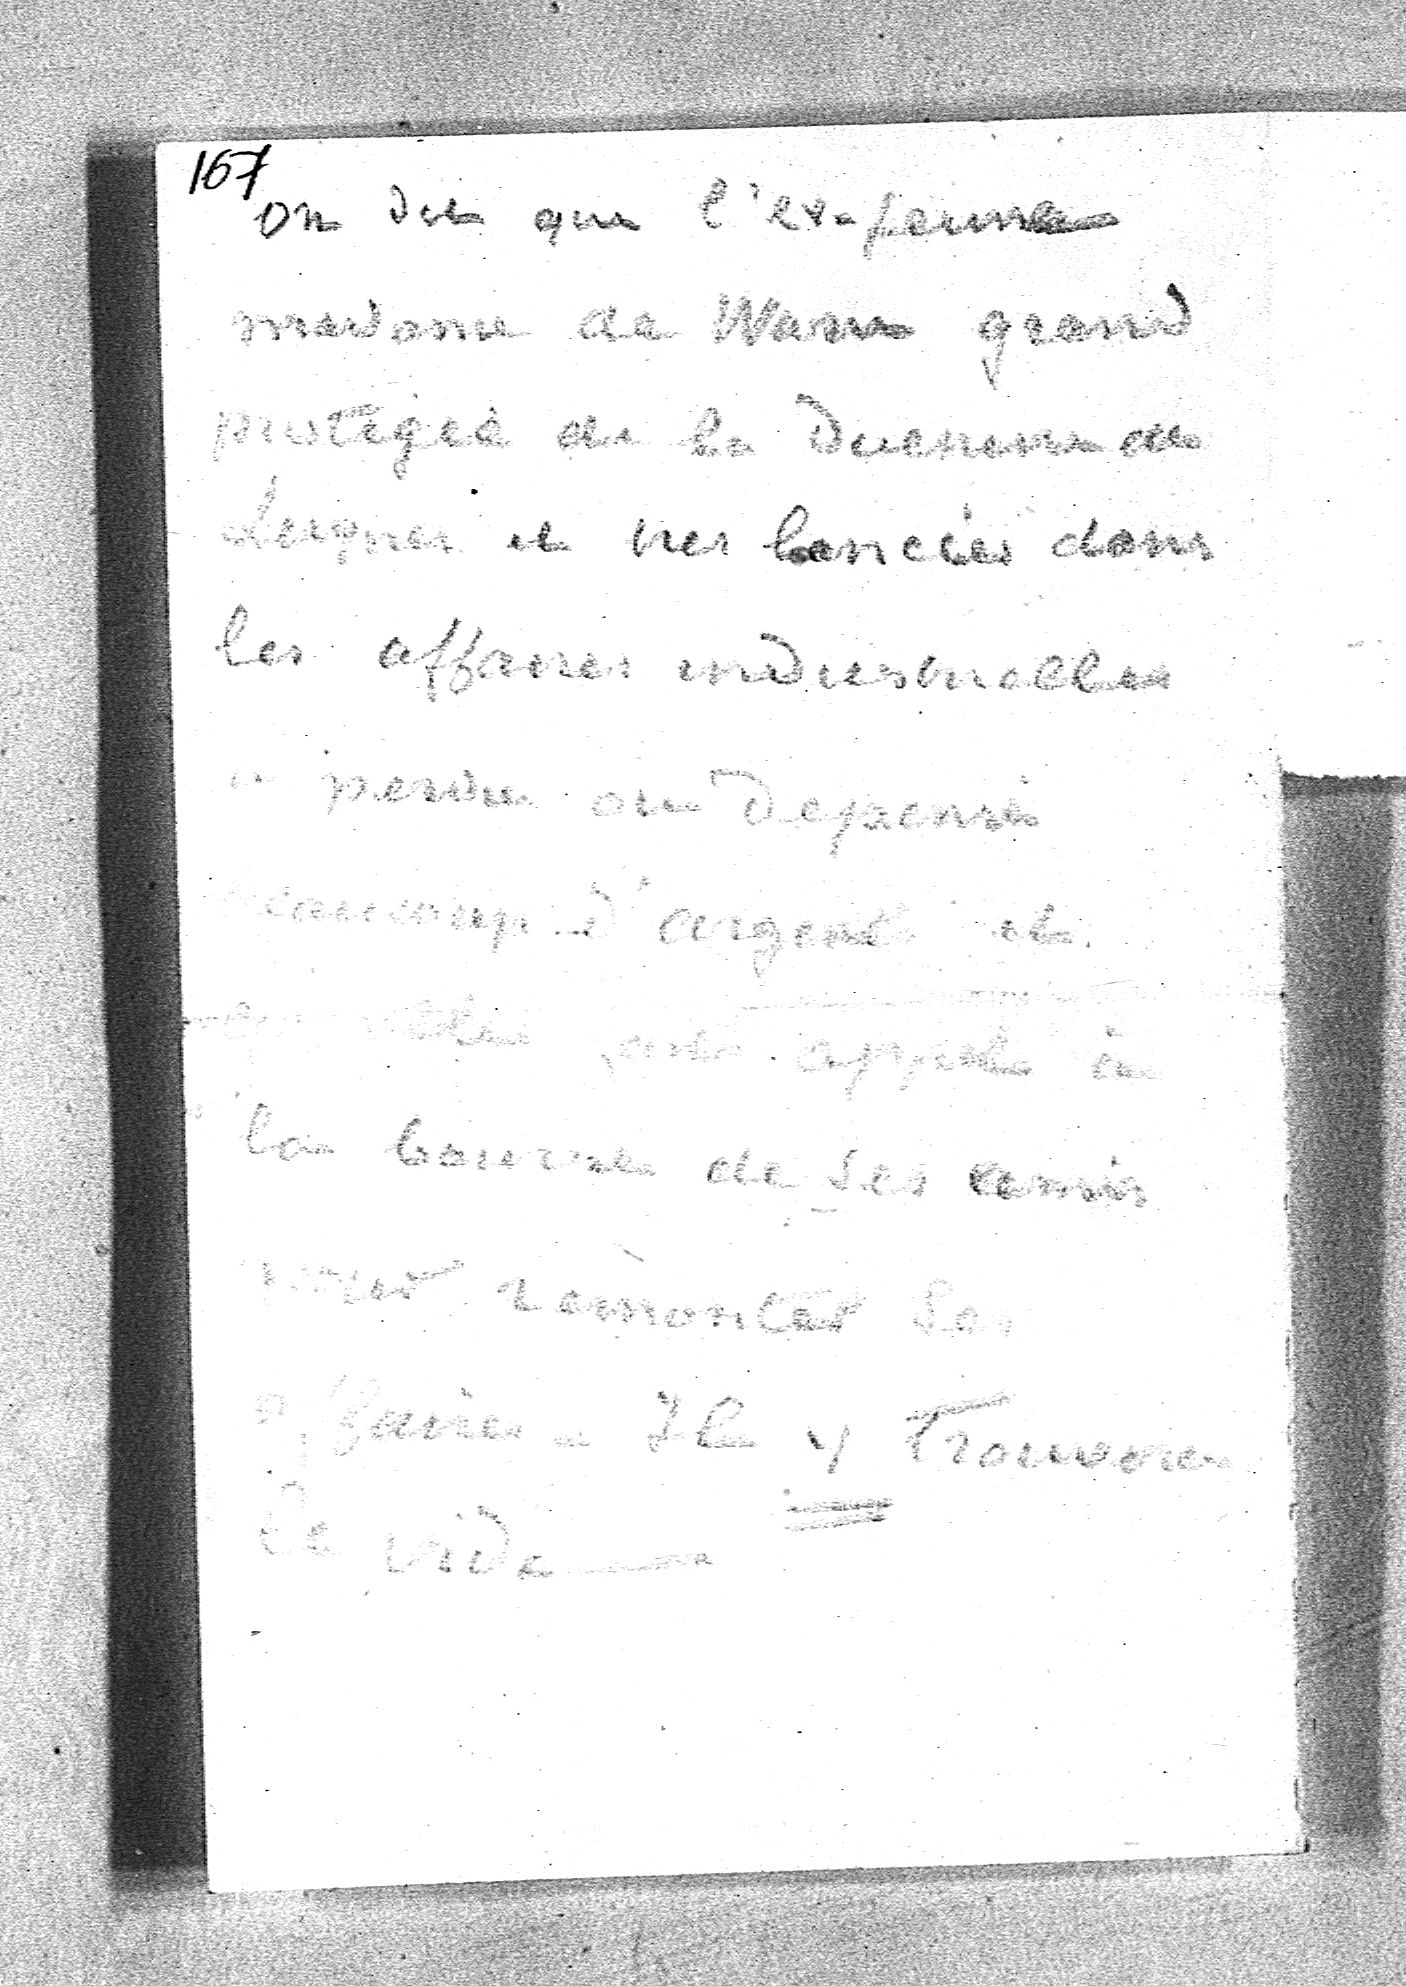 167
on dit que l'ex-femme
madame de Warru grand
protégée de la Duchesse de
Luynes et tres lancées dans
les affaires industrielles
a perdu ou depensé
beaucoup d'argent et
qu'elle fait appel à
la bourse de ses amis
pour remonter ses
affaires - Ils y trouveront
le vide